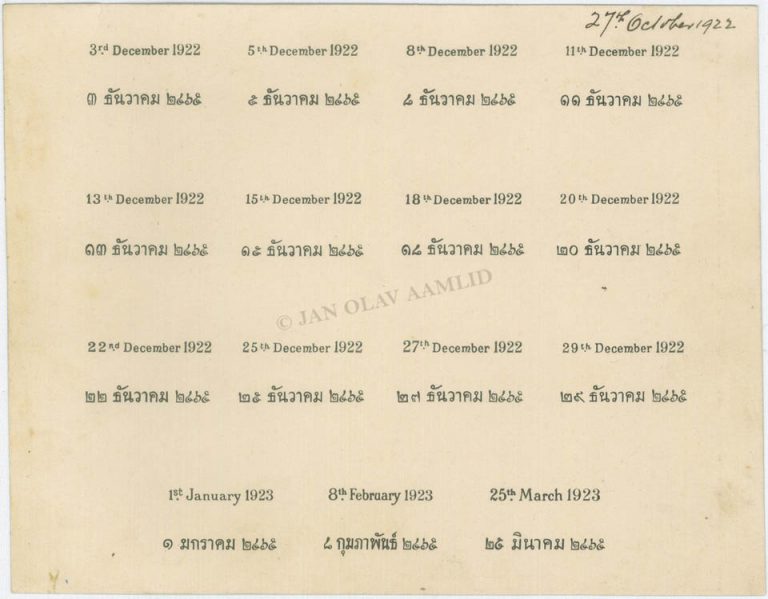 27th October 1922
3rd December 1922 5th December 1922 8th December 1922 11th December 1922
๓ ธันวาคม ๒๔๖๕ ๕ ธันวาคม ๒๔๖๕ ๘ ธันวาคม ๒๔๖๕ ๑๑ ธันวาคม ๒๔๖๕
13th December 1922 15th December 1922 18th December 1922 20th December 1922
๑๓ ธันวาคม ๒๔๖๕ ๑๕ ธันวาคม ๒๔๖๕ ๑๘ ธันวาคม ๒๔๖๕ ๒๐ ธันวาคม ๒๔๖๕
© JAN OLAV AAMLID
22nd December 1922 25th December 1922 27th December 1922 29th December 1922
๒๒ ธันวาคม ๒๔๖๕ ๒๕ ธันวาคม ๒๔๖๕ ๒๗ ธันวาคม ๒๔๖๕ ๒๙ ธันวาคม ๒๔๖๕
1st January 1923 8th February 1923 25th March 1923
๑ มกราคม ๒๔๖๕ ๘ กุมภาพันธ์ ๒๔๖๕ ๒๕ มีนาคม ๒๔๖๕